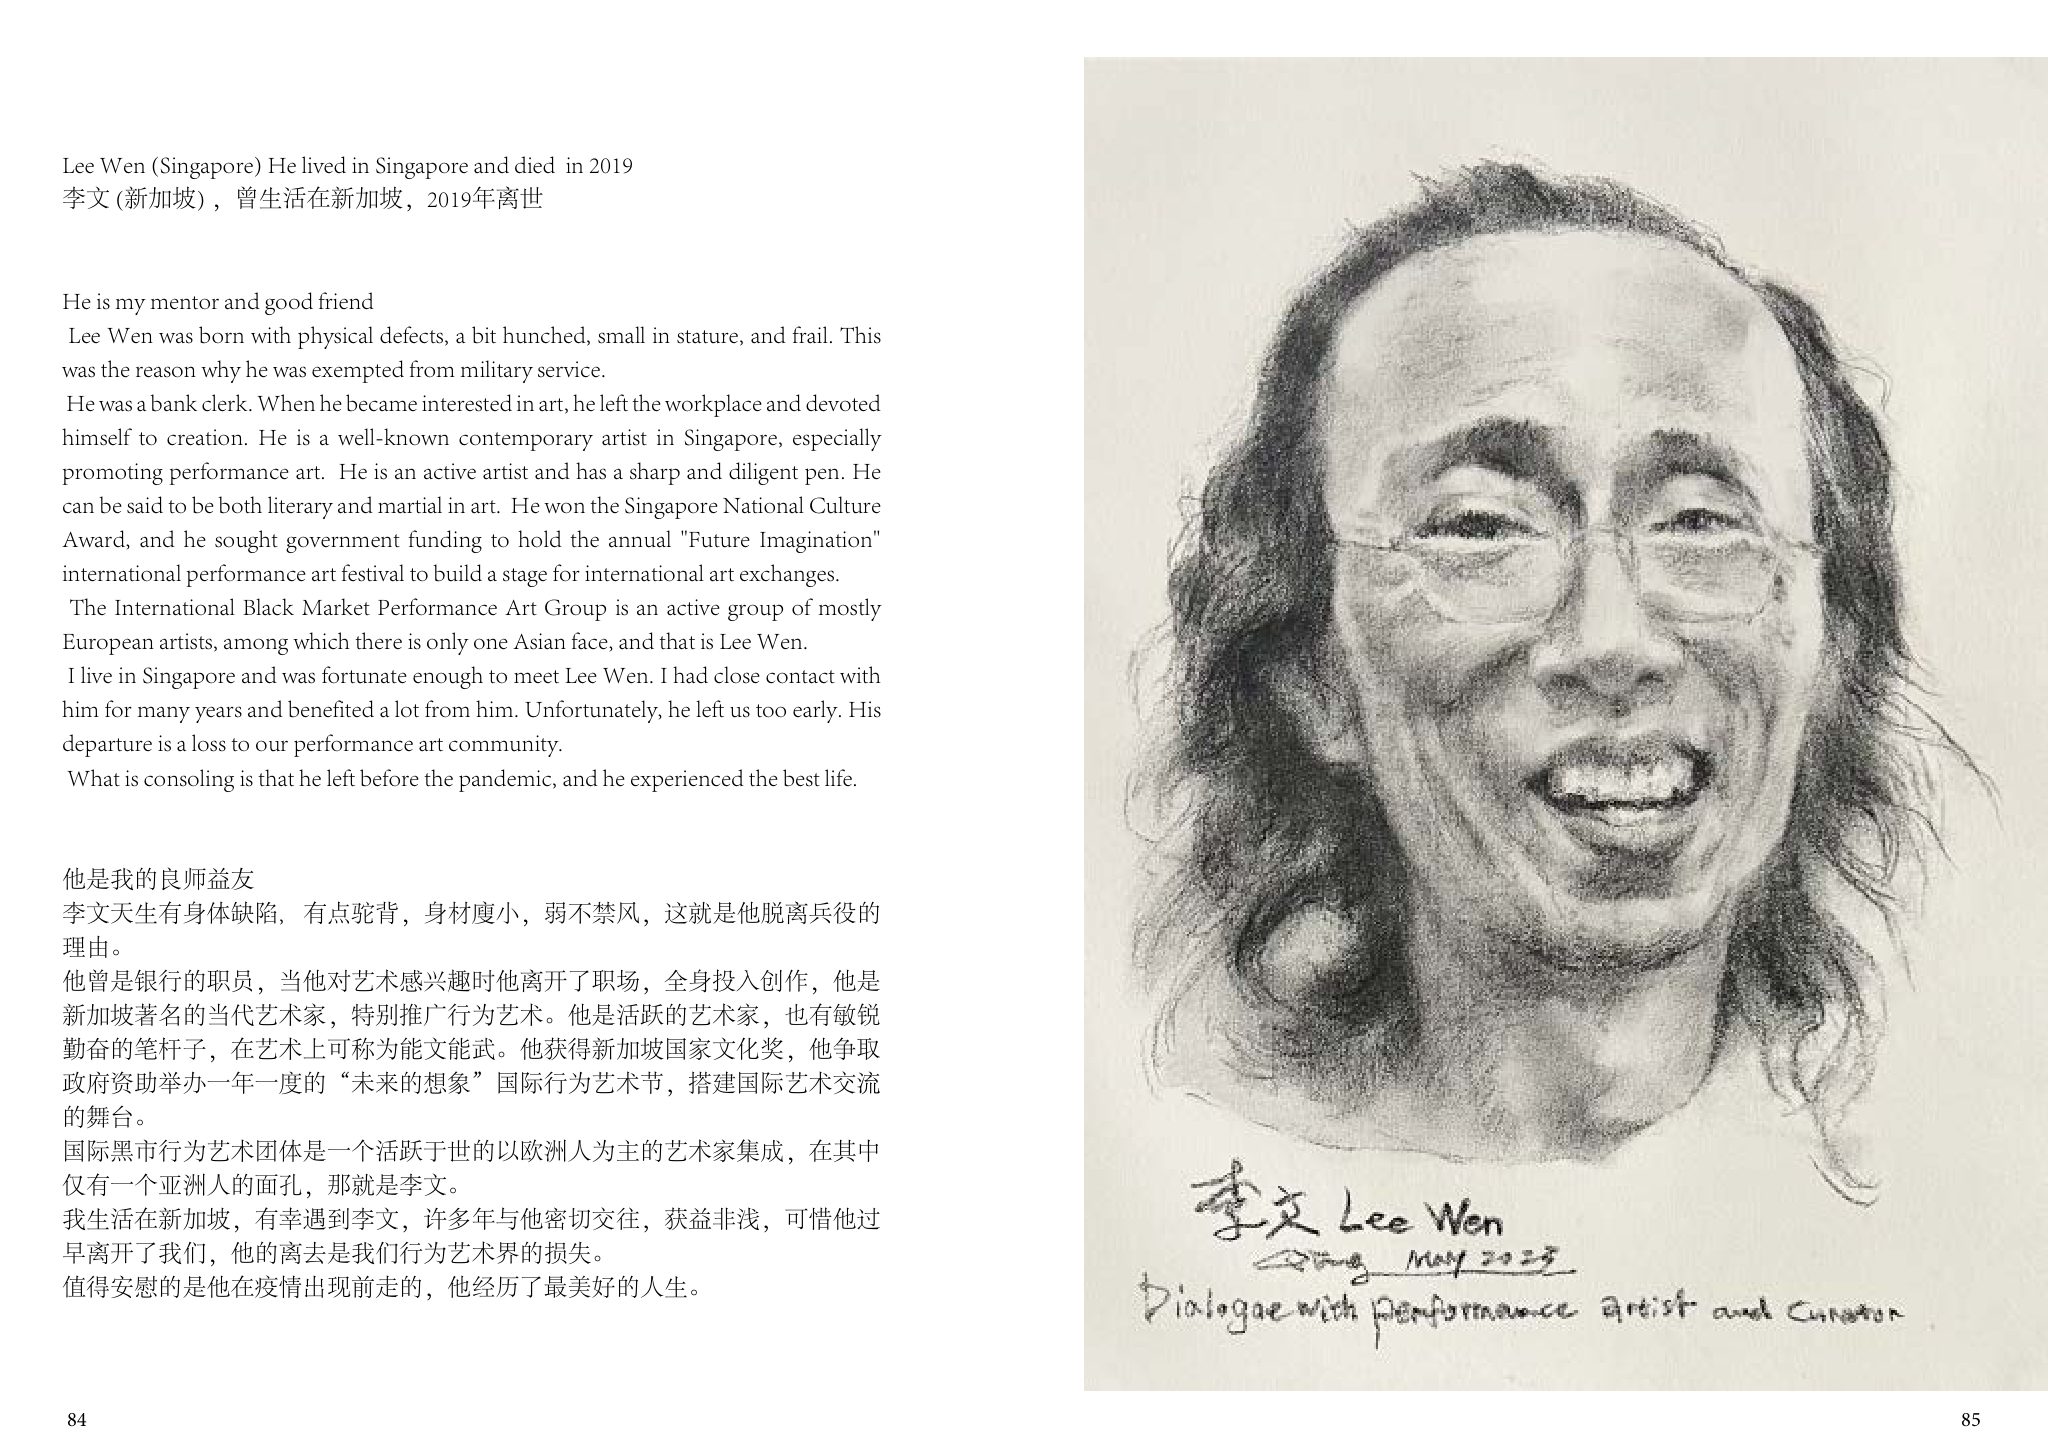 Lee Wen (Singapore) He lived in Singapore and died  in 2019
李文 (新加坡) ，曾生活在新加坡，2019年离世
He is my mentor and good friend
Lee Wen was born with physical defects, a bit hunched, small in stature, and frail. This
was the reason why he was exempted from military service.
He was a bank clerk. When he became interested in art, he left the workplace and devoted
himself to creation. He is a well-known contemporary artist in Singapore, especially
promoting performance art.  He is an active artist and has a sharp and diligent pen. He
can be said to be both literary and martial in art.  He won the Singapore National Culture
Award, and he sought government funding to hold the annual "Future Imagination"
international performance art festival to build a stage for international art exchanges.
The International Black Market Performance Art Group is an active group of mostly
European artists, among which there is only one Asian face, and that is Lee Wen.
I live in Singapore and was fortunate enough to meet Lee Wen. I had close contact with
him for many years and benefited a lot from him. Unfortunately, he left us too early. His
departure is a loss to our performance art community.
What is consoling is that he left before the pandemic, and he experienced the best life.
他是我的良师益友
李文天生有身体缺陷，有点驼背，身材廋小，弱不禁风，这就是他脱离兵役的
理由。
他曾是银行的职员，当他对艺术感兴趣时他离开了职场，全身投入创作，他是
新加坡著名的当代艺术家，特别推广行为艺术。他是活跃的艺术家，也有敏锐
勤奋的笔杆子，在艺术上可称为能文能武。他获得新加坡国家文化奖，他争取
政府资助举办一年一度的“未来的想象”国际行为艺术节，搭建国际艺术交流
的舞台。
国际黑市行为艺术团体是一个活跃于世的以欧洲人为主的艺术家集成，在其中
仅有一个亚洲人的面孔，那就是李文。
我生活在新加坡，有幸遇到李文，许多年与他密切交往，获益非浅，可惜他过
早离开了我们，他的离去是我们行为艺术界的损失。
值得安慰的是他在疫情出现前走的，他经历了最美好的人生。
84
李文 Lee Wen
May 2023
Dialogue with performance artist and curator
85